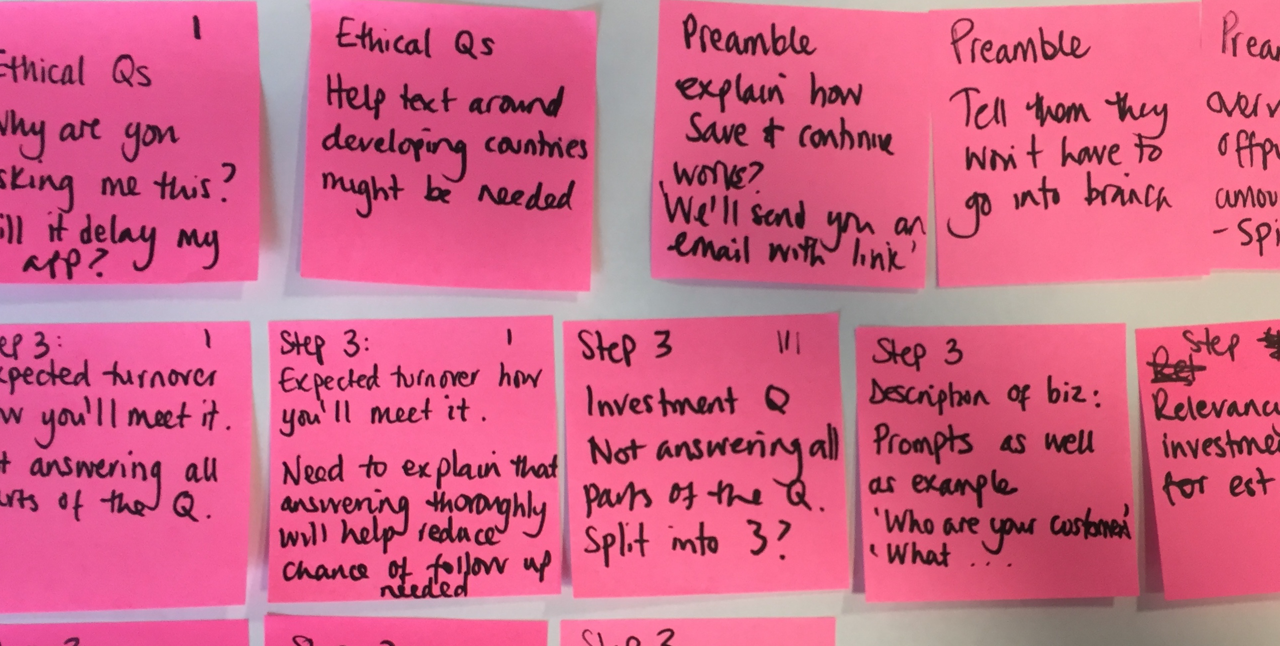 I
Ethical Qs
Why are you
asking me this?
Will it delay my
app?
Ethical Qs
Help text around
developing countries
might be needed
Preamble
explain how
Save & continue
works?
'We'll send you an
email with link'
Preamble
Tell them they
won't have to
go into branch
Prea
over
offpu
amou
- Spi
ep 3: I
xpected turnover
ow you'll meet it.
t answering all
arts of the Q.
Step 3: I
Expected turnover how
you'll meet it.
Need to explain that
answering thoroughly
will help reduce
chance of follow up
needed
Step 3 III
Investment Q
Not answering all
parts of the Q.
Split into 3?
Step 3
Description of biz:
Prompts as well
as example
'Who are your customers'
'What ...
Step
Relevanc
investme
for est
Step 3